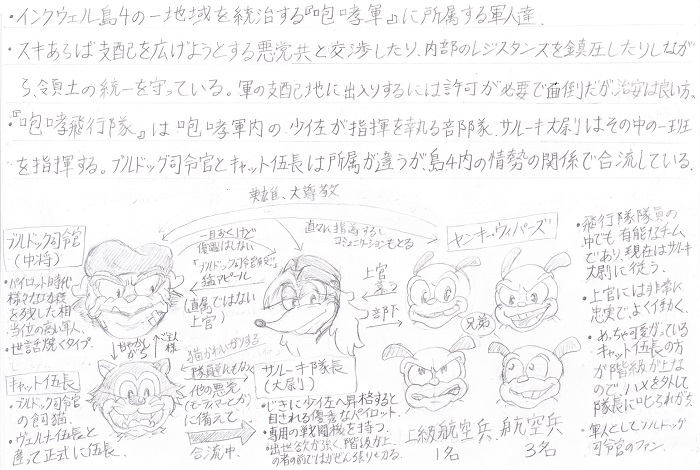 ・インクウェル島4の一地域を統治する『咆哮軍』に所属する軍人達.
・スキあらば支配を広げようとする悪党共と交渉したり、内部のレジスタンスを鎮圧したりしなが
ら、領土の統一を守っている。軍の支配地に出入りするには許可が必要で面倒だが、治安は良い方。
・『咆哮飛行隊』は咆哮軍内の少佐が指揮を執る部隊、サルーキ大尉はその中の一班
を指揮する。ブルドッグ司令官とキャット伍長は所属が違うが、島4内の情勢の関係で合流している.
英雄、大尊敬
ブルドック司令官
(中将)
・パイロット時代
様々な
を残した相
当位の高い軍人.
・世話焼くタイプ.
一目おくけど
優遇はしない
「ブルドッグ司令官最高!」
猛アピール
(直属ではない
上官)
直々に指導するし
コミュニケーションもとる
ヤンキー・ウィパーズ
上官
部下
兄弟
・飛行隊隊員の
中でも有能なチーム
であり、現在はサルーキ
大尉に従う.
・上官には非常に
忠実で、よく働く.
・めっちゃ可愛がっている
キャット伍長の方
が階級が上な
ので、ハメを外して
隊長に叱られがち.
・軍人としてブルドッグ
司令官のファン.
甘やかし
がち
ご主人
様
猫かわいがりする
隊員
他の悪党
(モーティマーとか)
に備えて
合流中.
キャット伍長
・ブルドッグ司令官
の飼猫.
・ヴェルナー伍長と
違って正式に伍長.
サルーキ部隊長
(大尉)
・じきに少佐へ昇格すると
目される優秀なパイロット.
・専用の戦闘機を持つ.
・出世欲が強く、階級が上
の者の前ではがぜん張り切る.
上級航空兵
1名
航空兵
3名